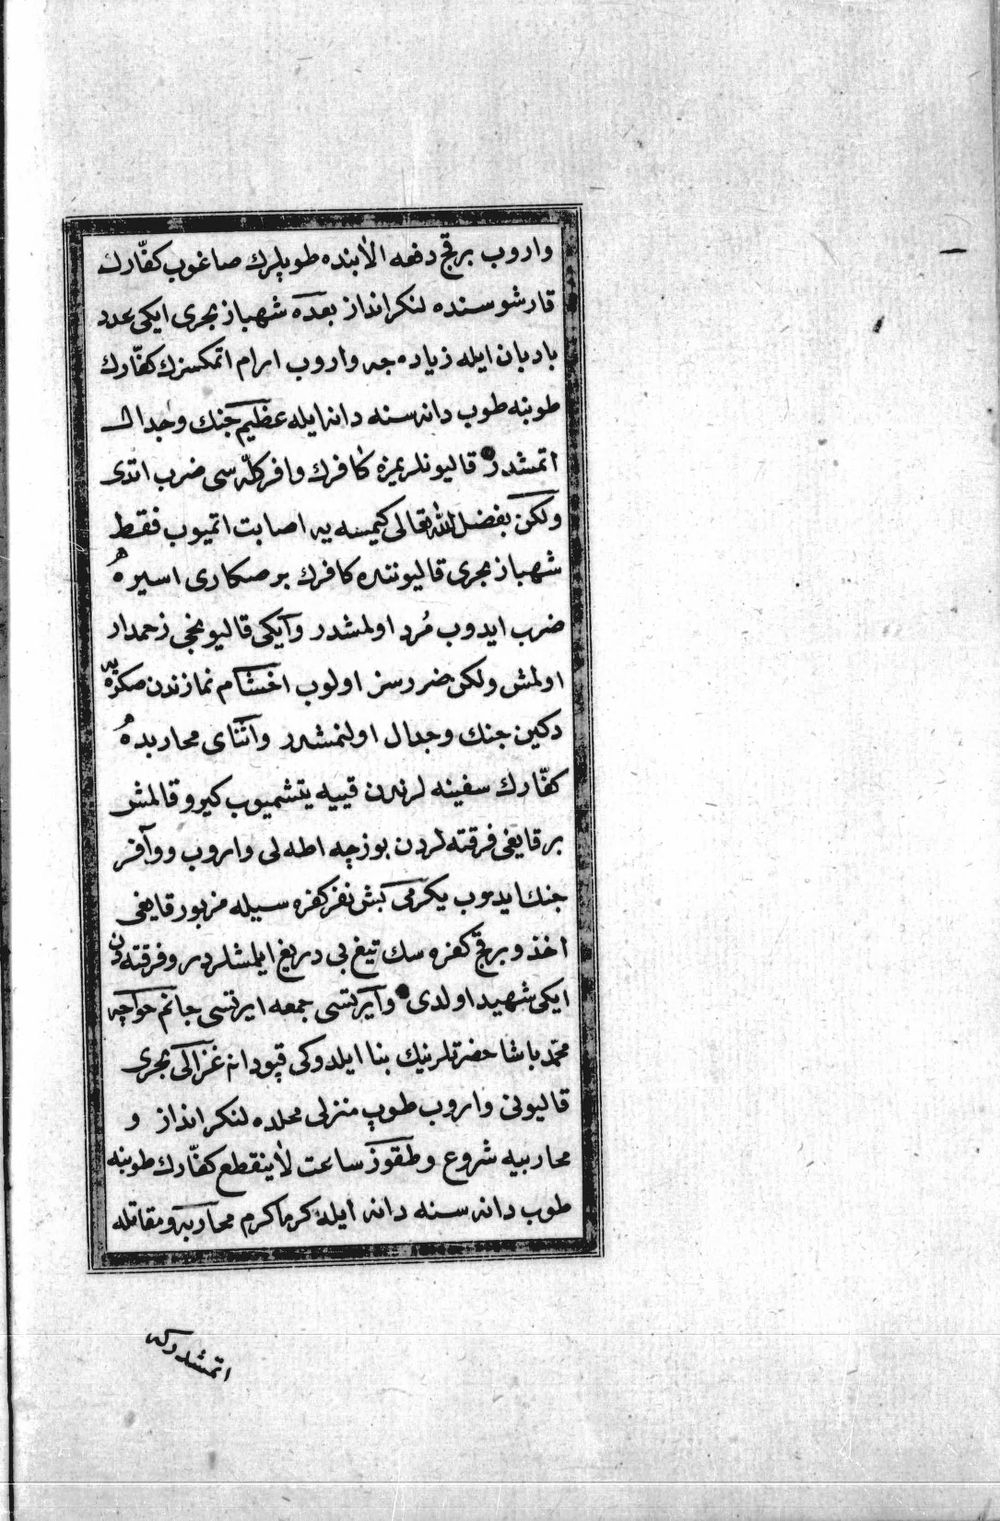 واروب برقچ دفعه الابنده طوپلرك صاغوب كفّارك
قارشوسنده لنكرانداز بعده شهباز بحرى ايكى عدد
بادبان ايله زياده جه واروب ارام اتمكسزك كفّارك
طوبنه طوب دانه سنه دانه ايله عظيم جنك وجدال
اتمشدر قاليونلريمزه كافرك وافر كلّه سى ضرب اتدى
ولكن بفضل الله تعالى كيمسه يه اصابت اتميوب فقط
شهباز بحرى قاليوننده كافرك بر صكارى اسيره
ضرب ايدوب مُرد اولمشدر وايكى قاليونجى زحمدار
اولمش ولكن ضررسز اولوب اخشام نمازندن صكره يه
دكين جنك وجدال اولنمشدر واثناى محاربده
كفّارك سفينه لرندن قپيه يتشميوب كيرو قالمش
بر قايغى فرقته لردن بوزجه اطه لى واروب ووافر
جنك ايدوب يكرمى بش نفر كفره سيله مزبور قايغى
اخذ و برقچ كفره سك تيغ بى دريغ ايلمشلردر وفرقته دن
ايكى شهيد اولدى وايرتسى جمعه ايرتسى جانم خواجه
محمّد پاشا حضرتلرينك بنا ايلدوكى قپودانه غزالى بحرى
قاليونى واروب طوپ منزلى محلده لنكرانداز و
محاربيه شروع وطقوز ساعت لاينقطع كفّارك طوبنه
طوب دانه سنه دانه ايله كرماكرم محاربه ومقاتله
اتمشدركه